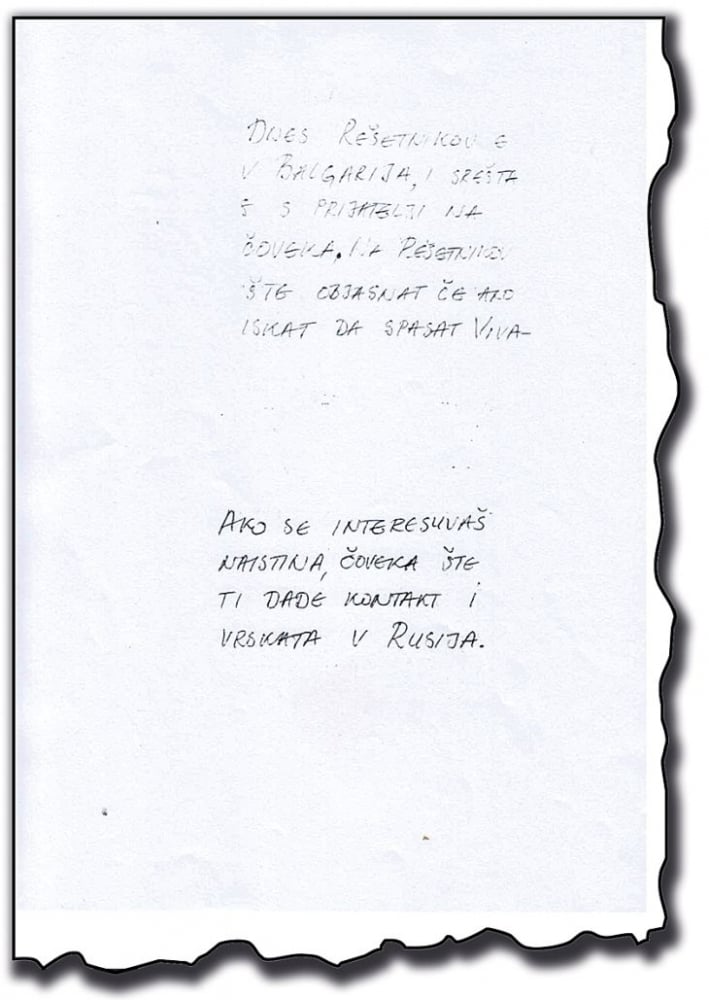 DNES REŠETNIKOV E
V BALGARIJA, I SREŠTA
Š S PRIJATELJI NA
ČOVEKA. NA REŠETNIKOV
ŠTE OBJASNAT ČE AKO
ISKAT DA SPASAT VIVA-
AKO SE INTERESUVAŠ
NAISTINA, ČOVEKA ŠTE
TI DADE KONTAKT I
VRSKATA V RUSIJA.